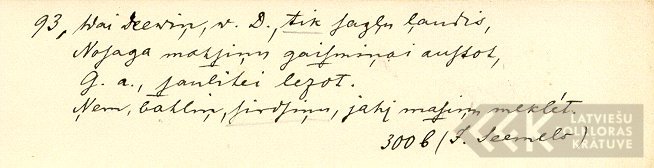 93, Wai Deewiņ, w. D., tik sagļu ļaudis,
Nosaga mahsiņu gaismiņai austot,
G. a., saulitei lezot.
Ņem, bahliņ, sirdsiņu, jahj mahsiņu meklét.
300 b (J. Seemels)
LATVIEŠU
FOLKLORAS
KRATUVE